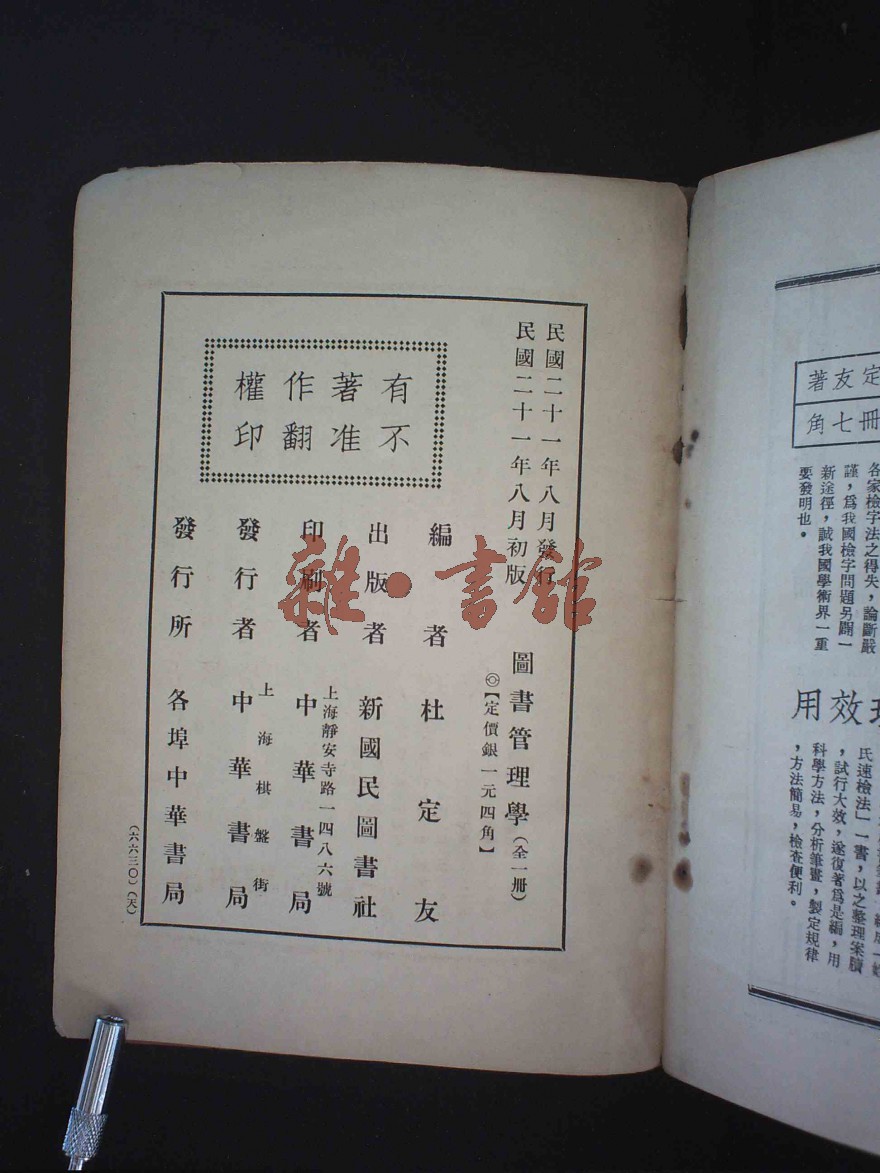 著友定
角七冊
各家檢字法之得失，論斷嚴
謹，爲我國檢字問題另闢一
新途徑，誠我國學術界一重
要發明也。
用效理
民速檢法」一書，以之整理案牘
，試行大效，遂復著爲是編，用
科學方法，分析筆畫，製定規律
，方法簡易，檢查便利。
民國二十一年八月發行
民國二十一年八月初版
圖書管理學（全一冊）
◎【定價銀一元四角】
有不
著准
作翻
權印
編者 杜定友
出版者 新國民圖書社
上海靜安寺路一四八六號
印刷者 中華書局
上海棋盤街
發行者 中華書局
發行所 各埠中華書局
（六六三〇）（天）
雜·書館